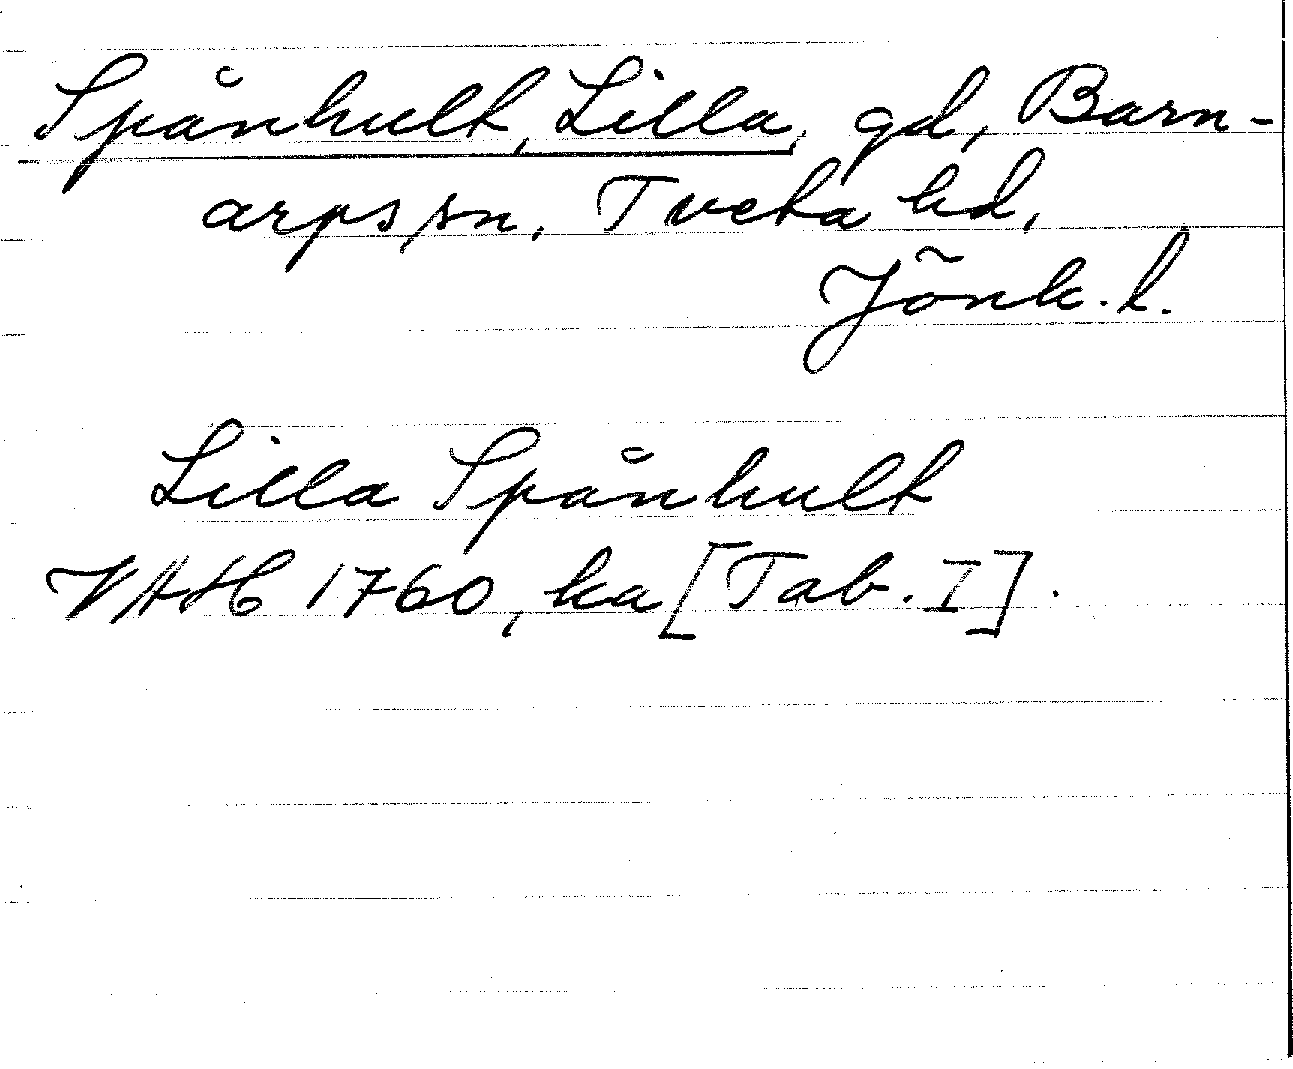 Spånhult, Lilla, gd, Barn-
arps sn, Tveta hd,
Jönk. l.
Lilla Spånhult
VAH 1760, ka [Tab. I].